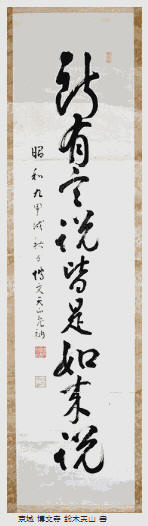 所有言説皆是如来説
昭和九甲戌秋日 博文天山老衲
京城 博文寺 鈴木天山 書